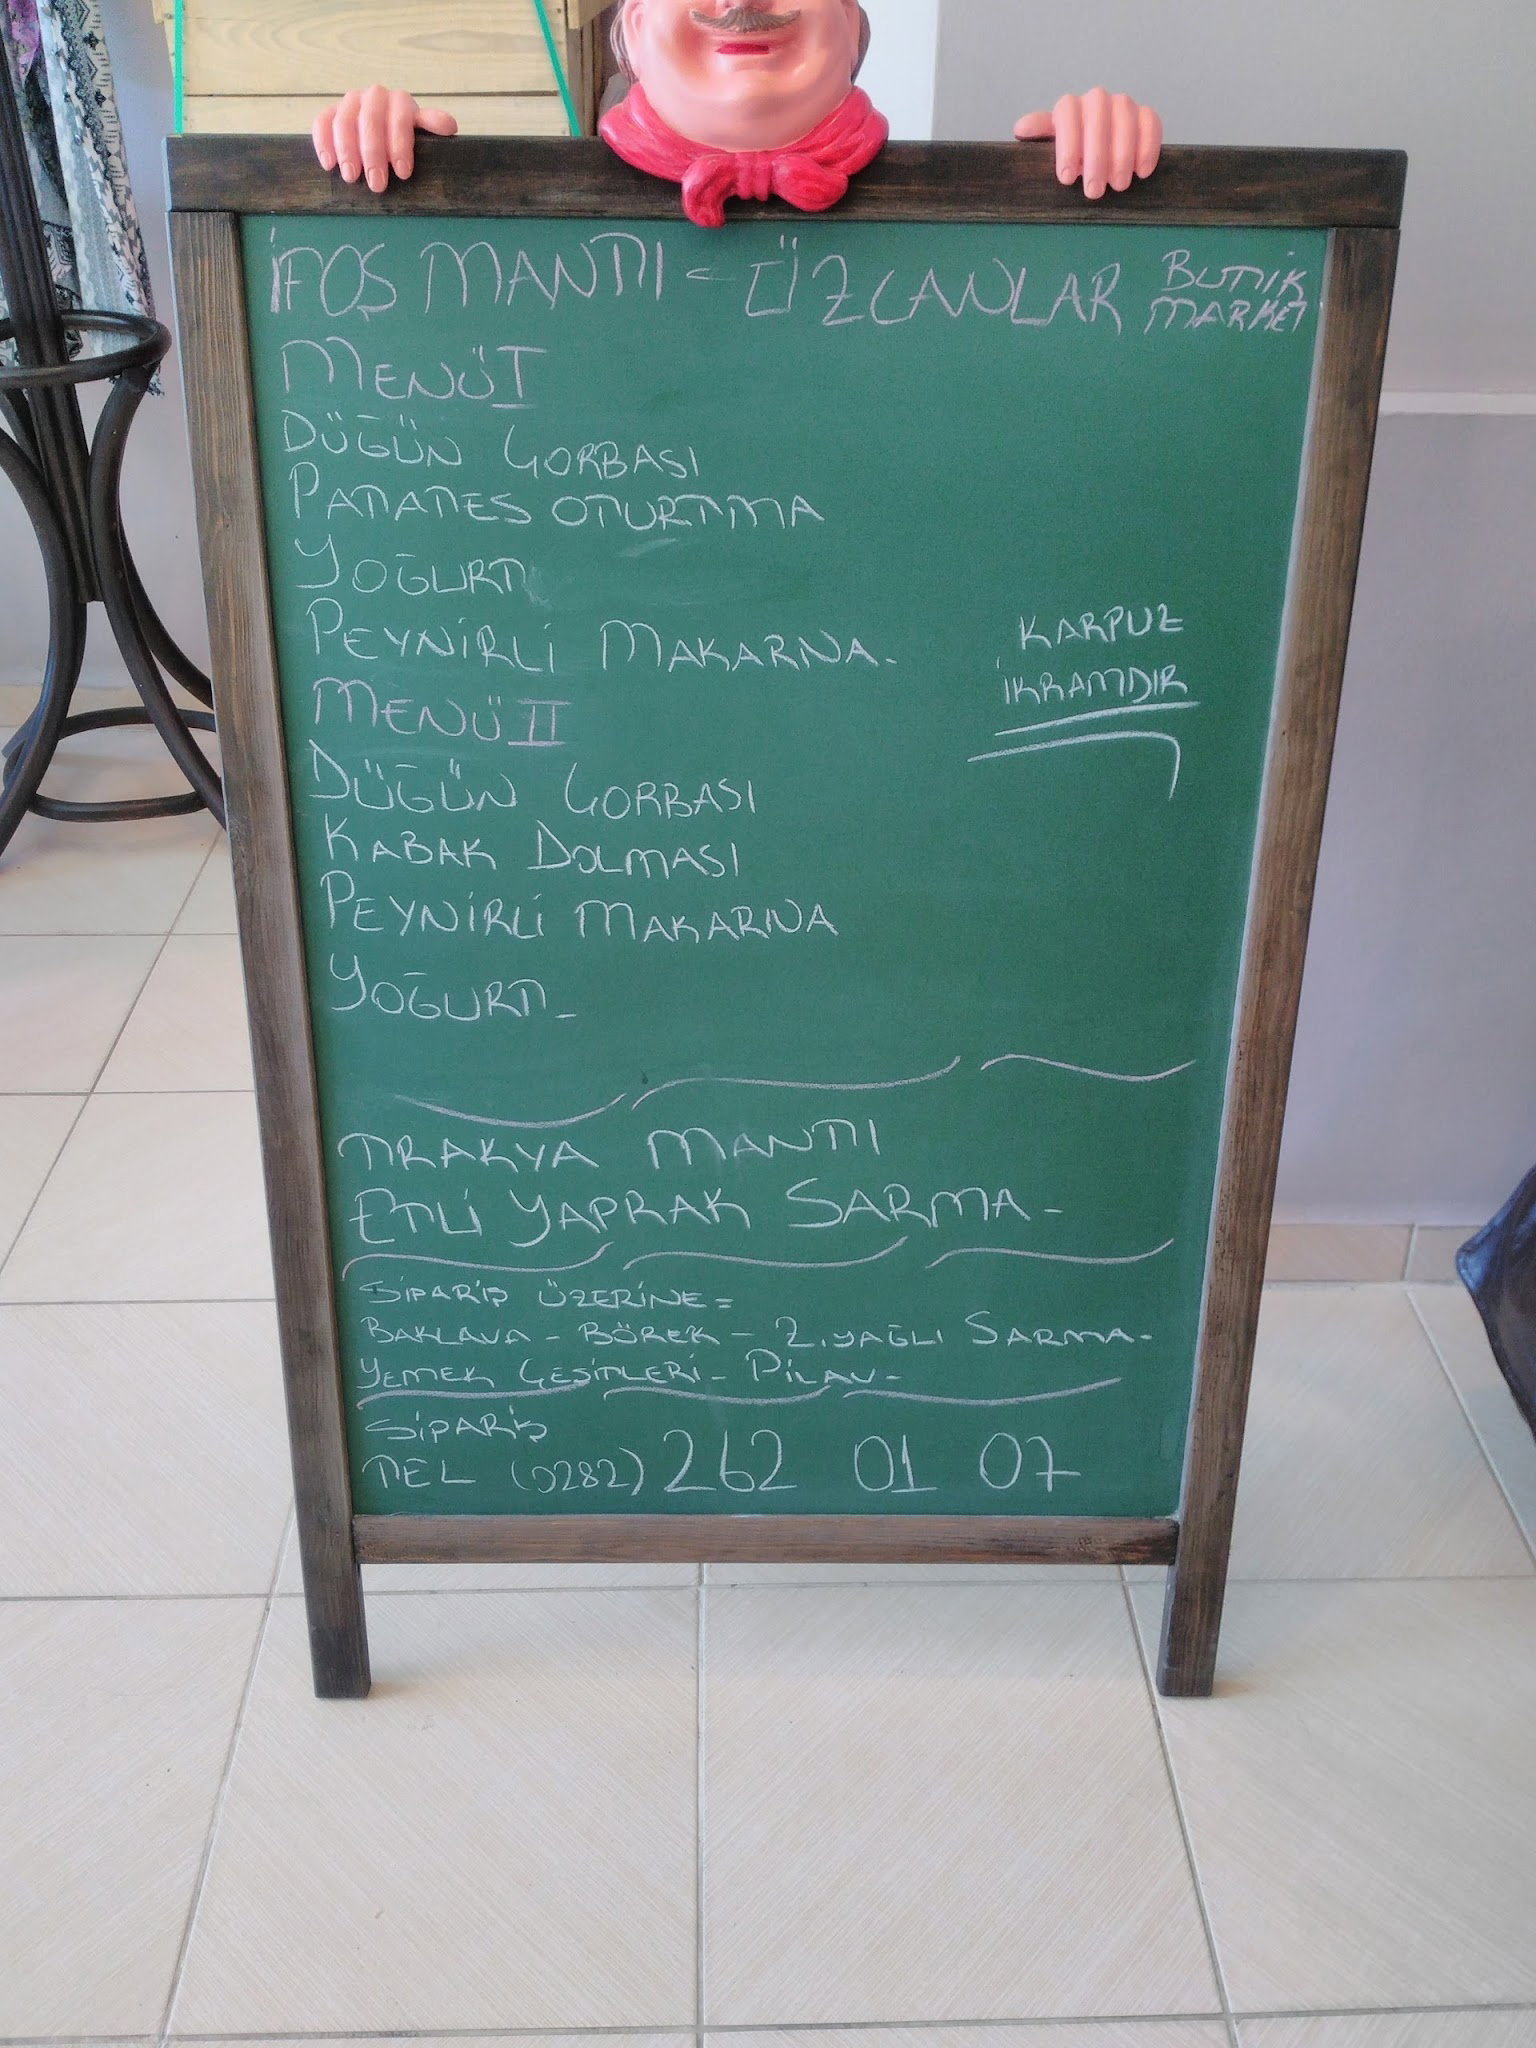 İFOŞ MANTI = ÜZCANLAR BUTİK MARKET
MENÜ I
DÜĞÜN ÇORBASI
PATATES OTURTMA
YOĞURT
PEYNİRLİ MAKARNA.
KARPUZ
İKRAMDIR
MENÜ II
DÜĞÜN ÇORBASI
KABAK DOLMASI
PEYNİRLİ MAKARNA
YOĞURT-
TRAKYA MANTI
ETLİ YAPRAK SARMA-
SİPARİŞ ÜZERİNE=
BAKLAVA - BÖREK - Z.YAĞLI SARMA-
YEMEK ÇEŞİTLERİ - PİLAV-
SİPARİŞ
TEL (0282) 262 01 07